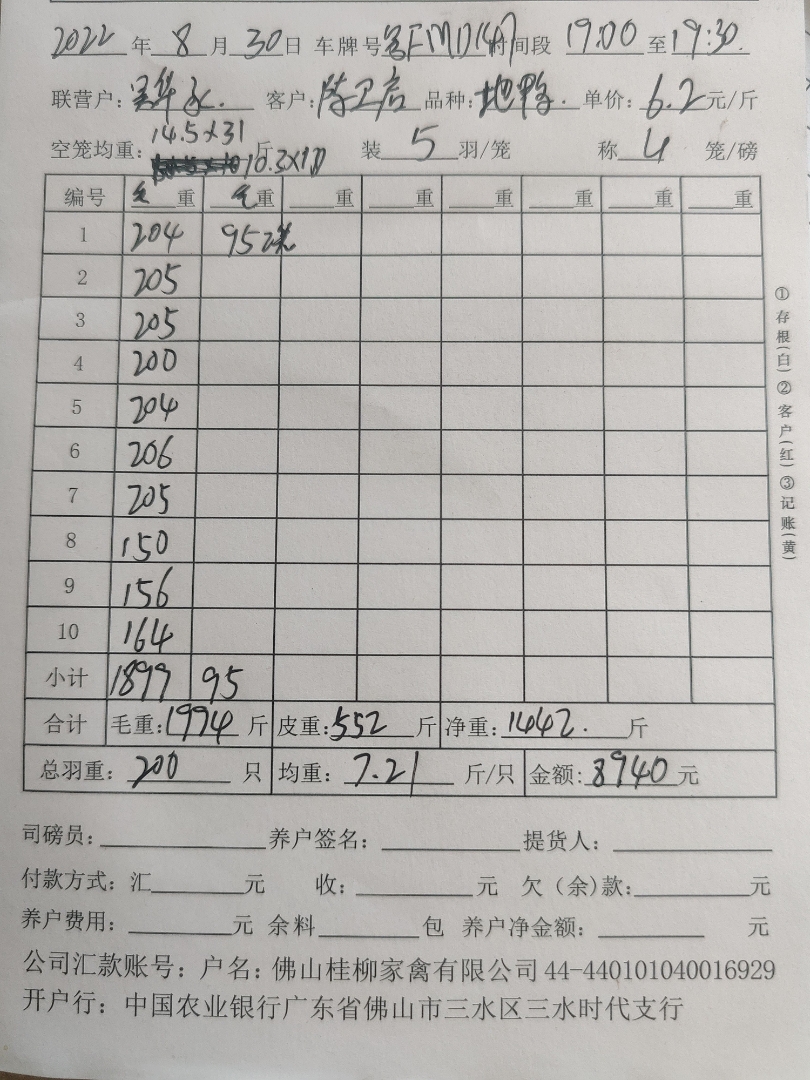 2022 年 8 月 30 日 车牌号 FMD 时间段 19:00 至 19:30.
联营户: 吴华 客户: 陈卫 品种: 地鸭. 单价: 6.2 元/斤
14.5×31
空笼均重: 10.3×10 斤 装 5 羽/笼 称 4 笼/磅
编号 毛重 毛重 重 重 重 重 重 重
1 204 95 2笼
2 205
3 205
4 200
5 204
6 206
7 205
8 150
9 156
10 164
小计 1899 95
合计 毛重: 1994 斤 皮重: 552 斤 净重: 1442. 斤
总羽重: 200 只 均重: 7.21 斤/只 金额: 8940 元
司磅员: 养户签名: 提货人:
付款方式: 汇 元 收: 元 欠(余)款: 元
养户费用: 元 余料 包 养户净金额: 元
公司汇款账号: 户名: 佛山桂柳家禽有限公司 44-440101040016929
开户行: 中国农业银行广东省佛山市三水区三水时代支行
①存根(白)②客户(红)③记账(黄)